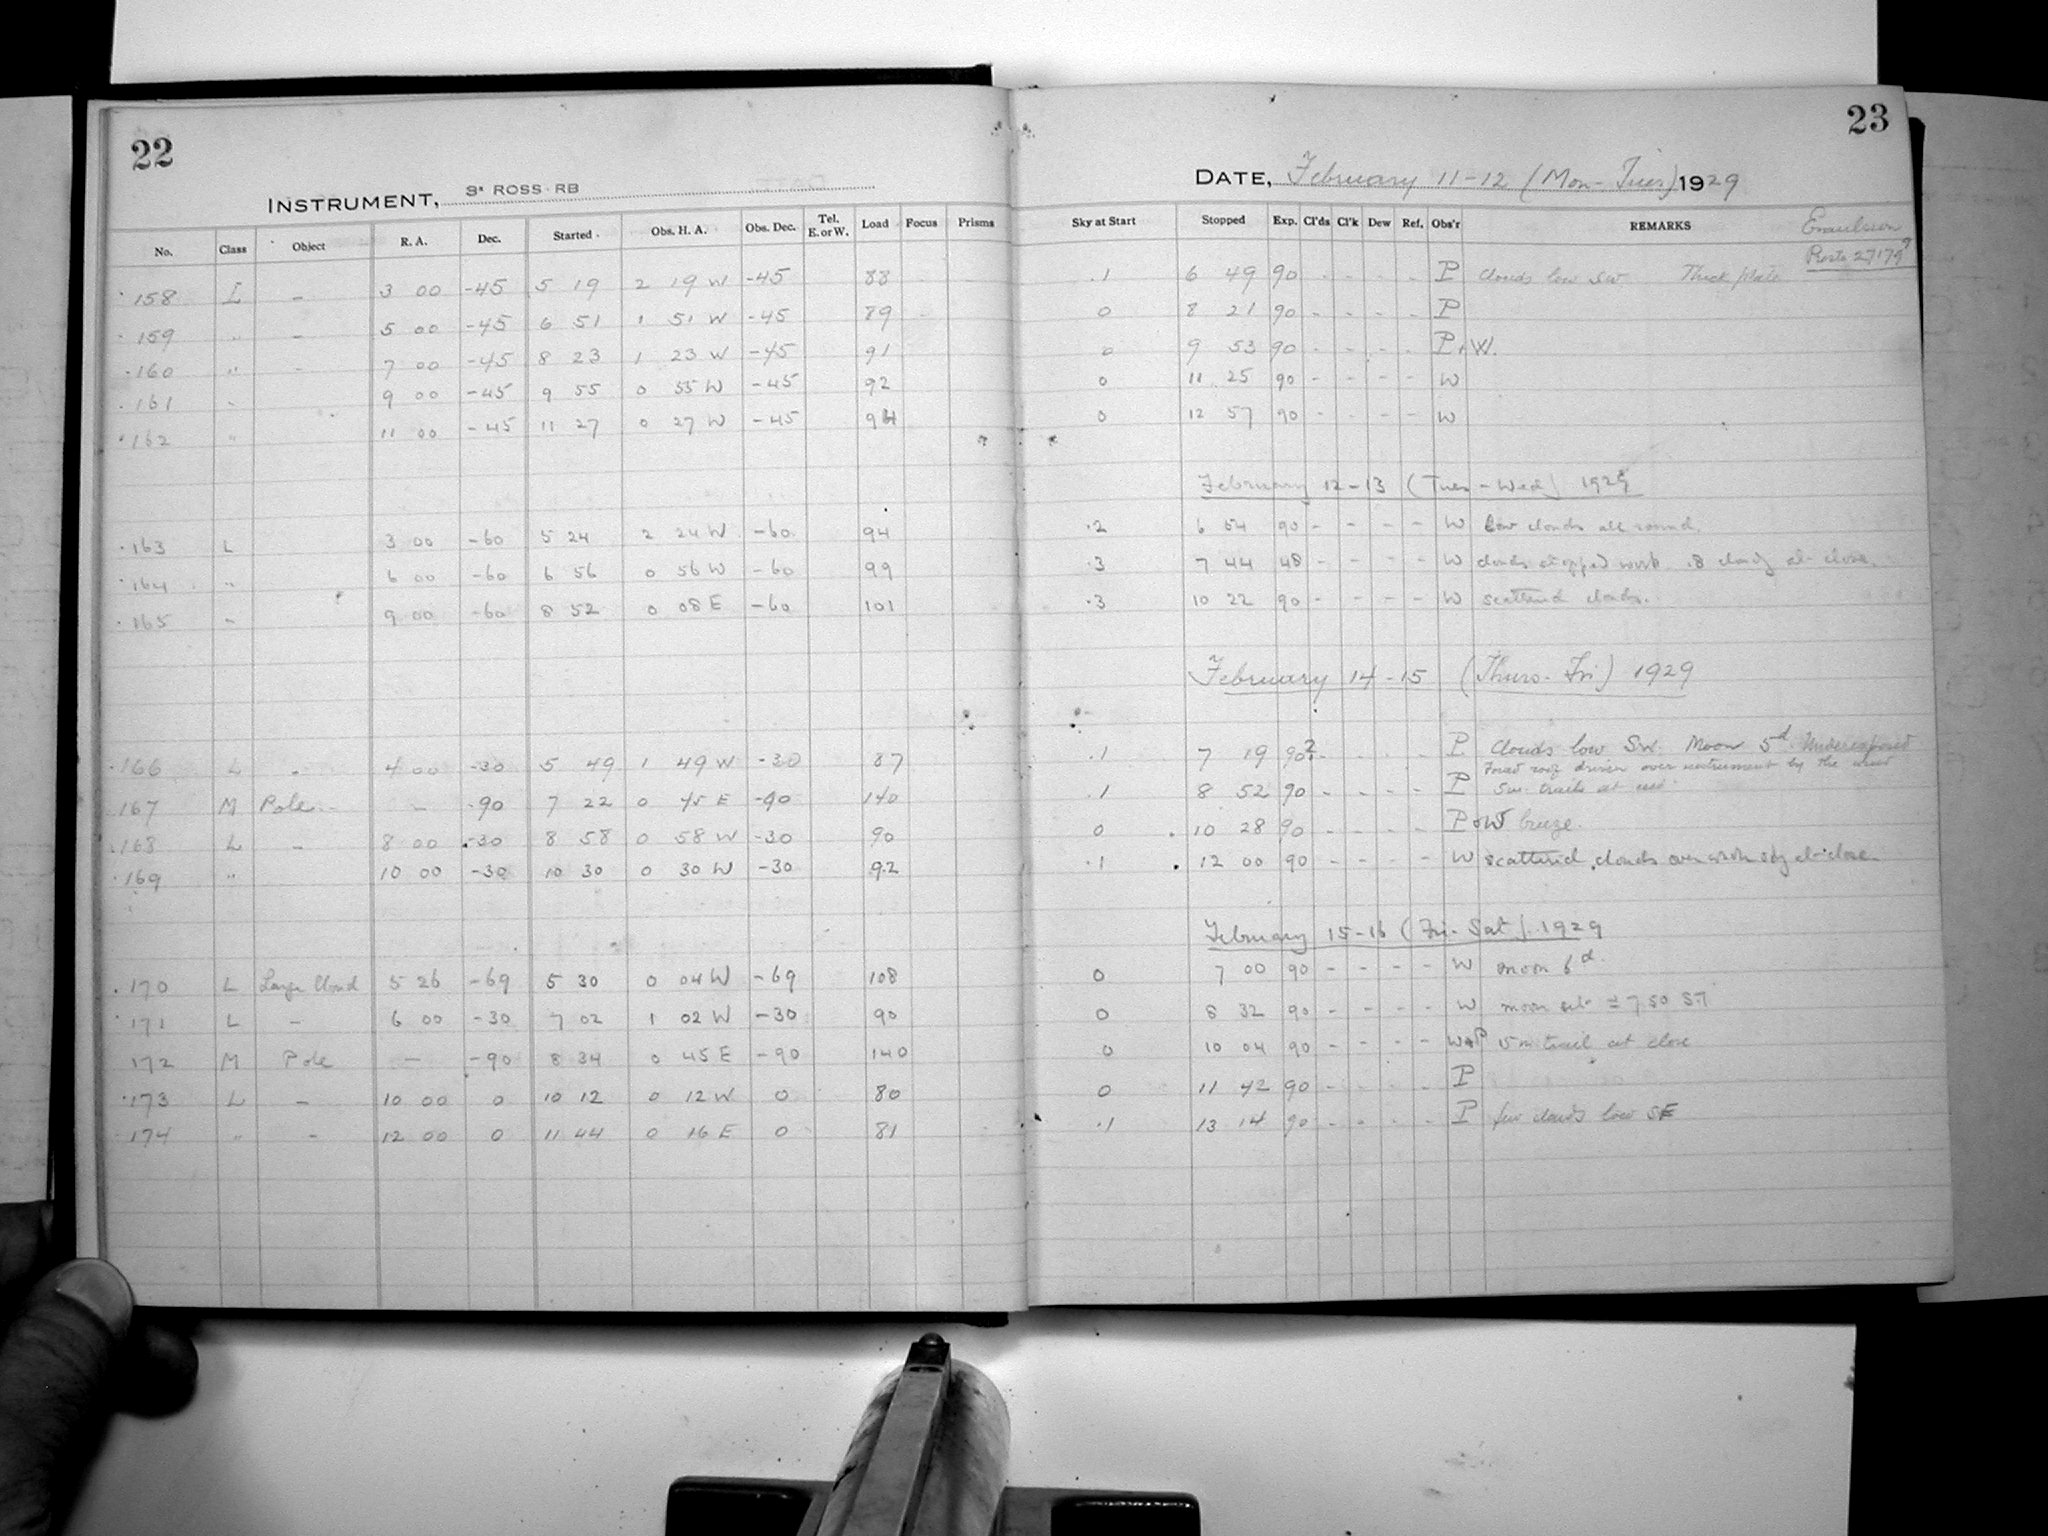 22
INSTRUMENT, 3" ROSS·RB
No. Class Object R. A. Dec. Started Obs. H. A. Obs. Dec. Tel. E. or W. Load Focus Prisms
158 L - 3 00 -45 5 19 2 19 W -45 88
159 " - 5 00 -45 6 51 1 51 W -45 89
160 " - 7 00 -45 8 23 1 23 W -45 91
161 " 9 00 -45 9 55 0 55 W -45 92
162 " 11 00 -45 11 27 0 27 W -45 94
163 L 3 00 -60 5 24 2 24 W -60 94
164 " 6 00 -60 6 56 0 56 W -60 99
165 " 9 00 -60 8 52 0 08 E -60 101
166 L - 4 00 -30 5 49 1 49 W -30 87
167 M Pole - - -90 7 22 0 45 E -90 140
168 L - 8 00 -30 8 58 0 58 W -30 90
169 " 10 00 -30 10 30 0 30 W -30 92
170 L Large Cloud 5 26 -69 5 30 0 04 W -69 108
171 L - 6 00 -30 7 02 1 02 W -30 90
172 M Pole - -90 8 34 0 45 E -90 140
173 L - 10 00 0 10 12 0 12 W 0 80
174 " - 12 00 0 11 44 0 16 E 0 81
23
DATE, February 11-12 (Mon-Tues) 1929
Sky at Start Stopped Exp. Cl'ds Cl'k Dew Ref. Obs'r REMARKS Emulsion
27179
.1 6 49 90 - - - - P clouds low SW Thick plate
0 8 21 90 - - - - P
0 9 53 90 - - - - P, W.
0 11 25 90 - - - - W
0 12 57 90 - - - - W
February 12-13 (Tues-Wed) 1929
.2 6 54 90 - - - - W low clouds all round.
.3 7 44 48 - - - - W clouds stopped work .8 cloudy at close.
.3 10 22 90 - - - - W scattered clouds.
February 14-15 (Thurs-Fri) 1929
.1 7 19 90? - - - - P Clouds low SW. Moon 5d. Underexposed
roof driven over instrument by the wind
.1 8 52 90 - - - - P 5m trails at
0 10 28 90 - - - - P & W breeze.
.1 12 00 90 - - - - W scattered clouds over whole sky at close
February 15-16 (Fri-Sat) 1929
0 7 00 90 - - - - W moon 6d.
0 8 32 90 - - - - W moon set = 7.50 S.T.
0 10 04 90 - - - - W+P 15m trail at close
0 11 42 90 - - - - P
.1 13 14 90 - - - - P few clouds low SE